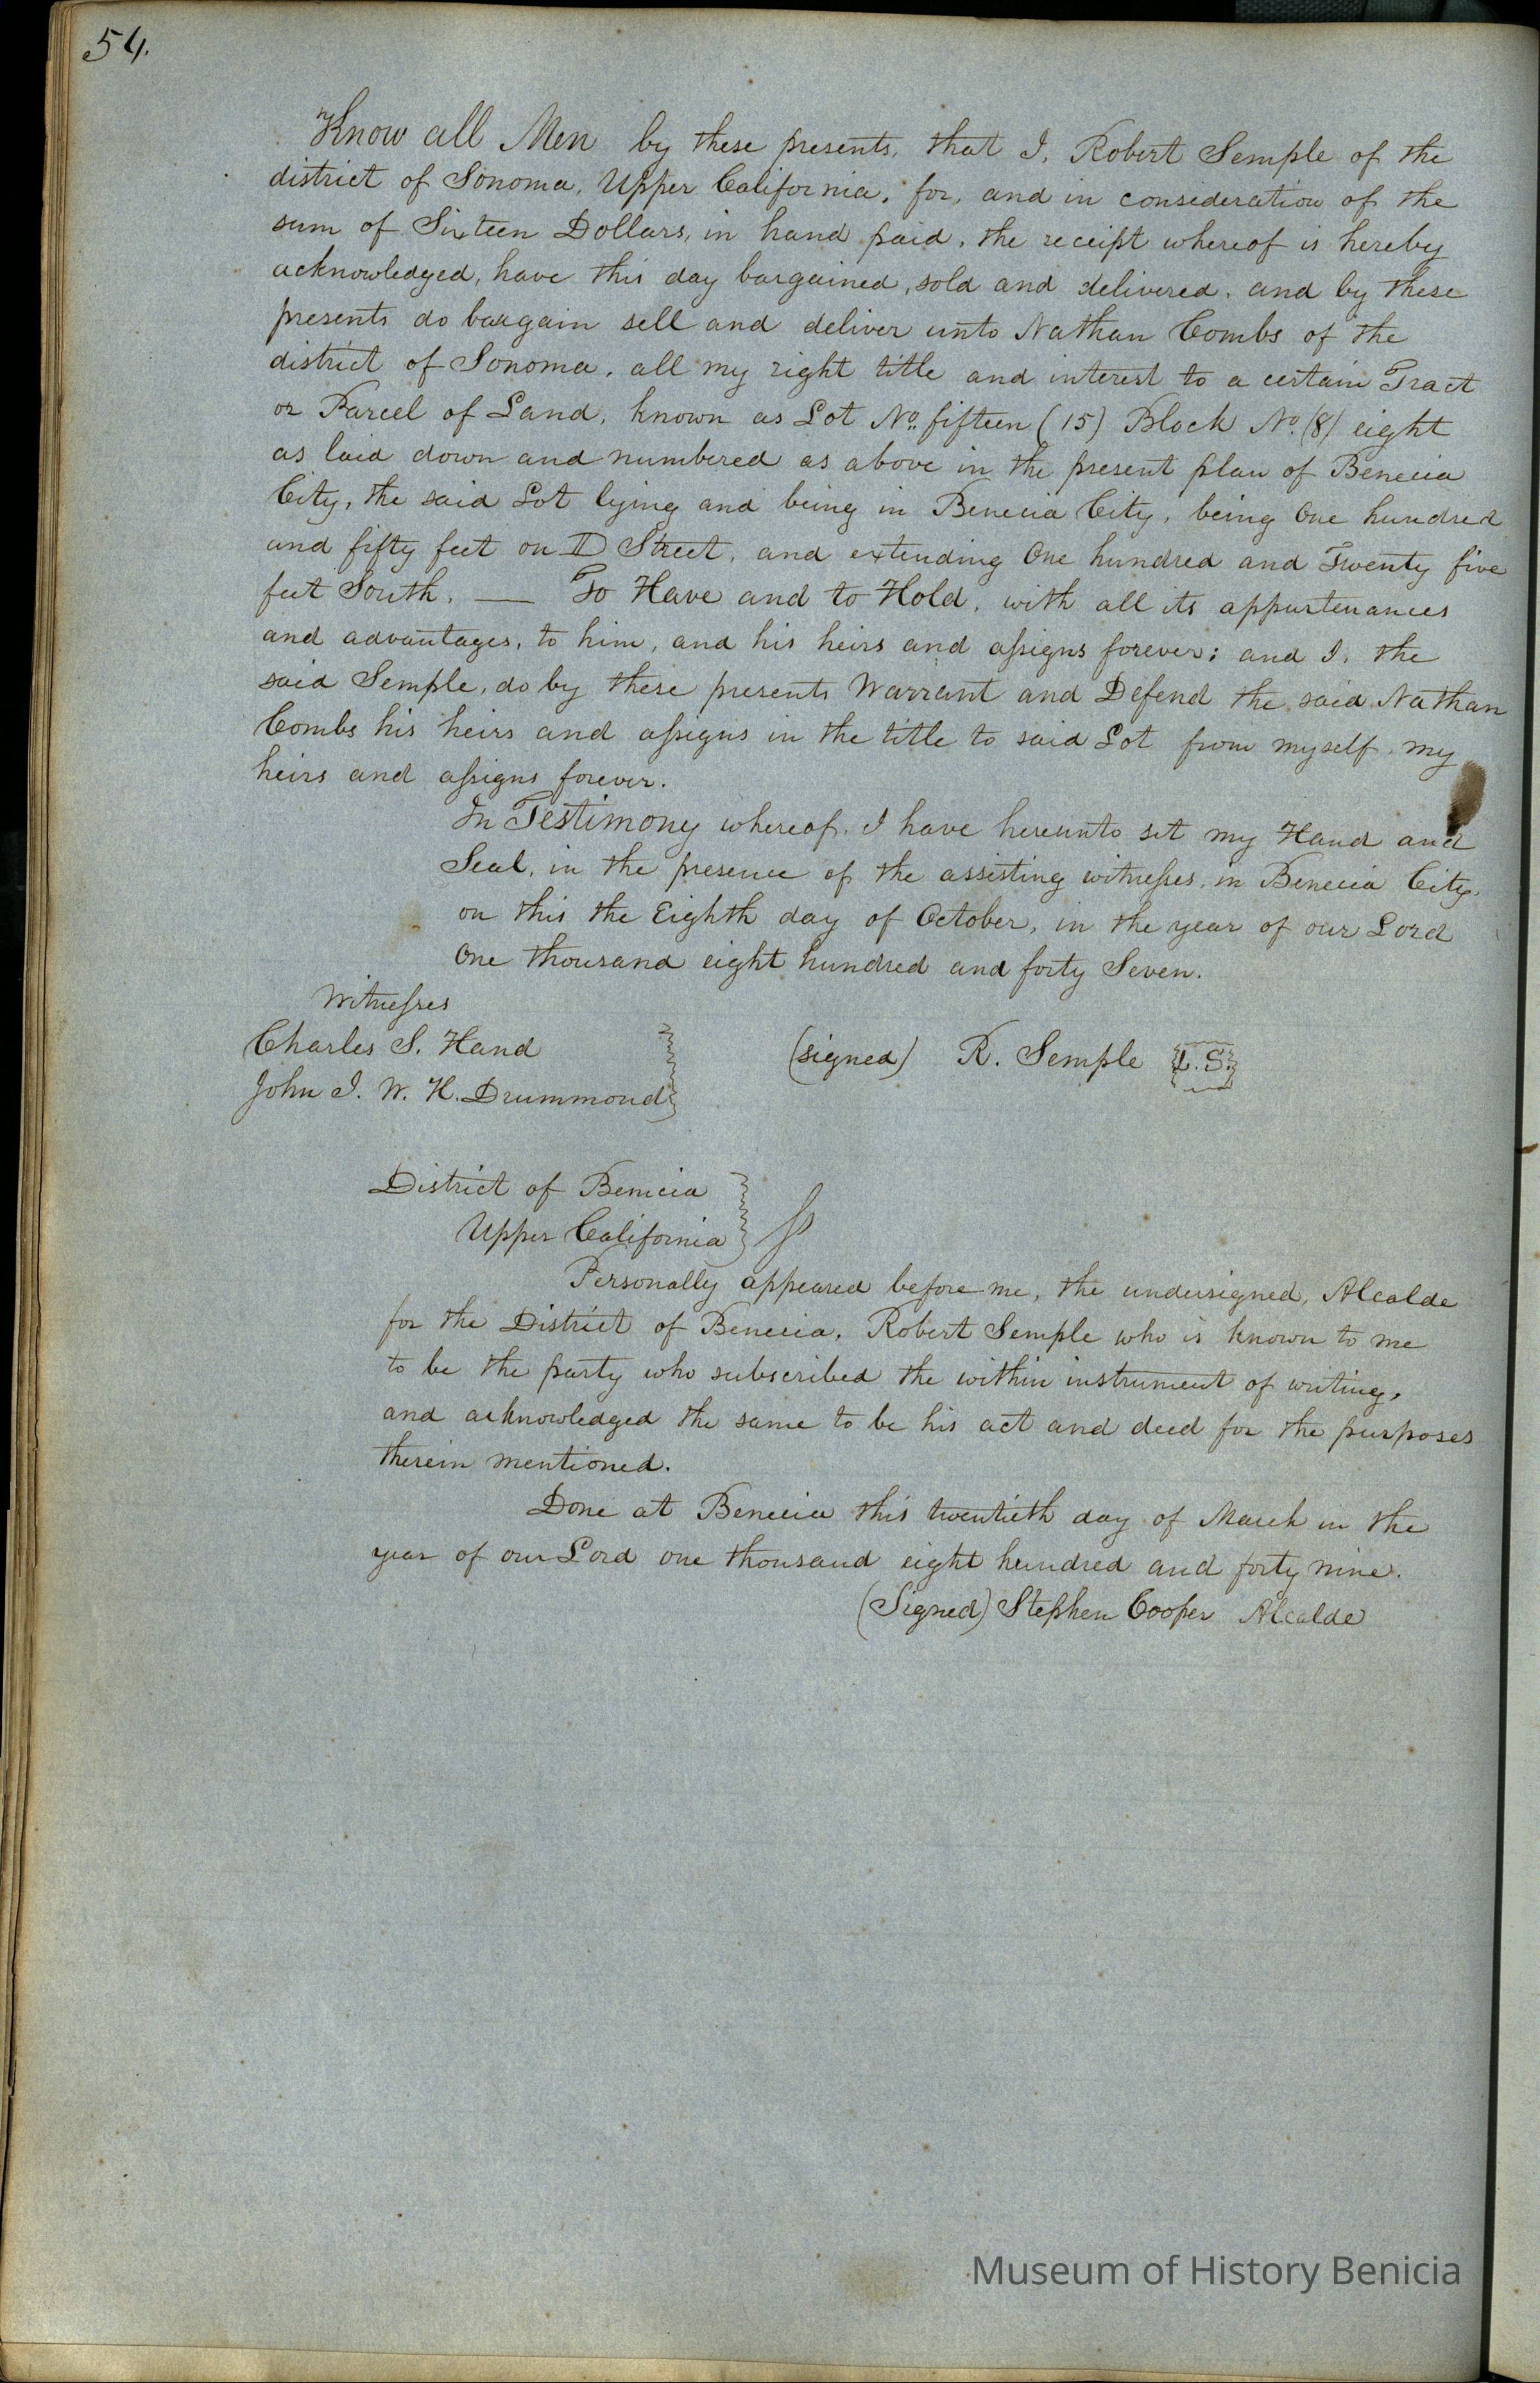 54.
Know all Men by these presents, that I, Robert Semple of the
district of Sonoma, Upper California, for, and in consideration of the
sum of Sixteen Dollars, in hand paid, the receipt whereof is hereby
acknowledged, have this day bargained, sold and delivered, and by these
presents do bargain sell and deliver unto Nathan Combs of the
district of Sonoma, all my right title and interest to a certain Tract
or Parcel of Land, known as Lot No. fifteen (15) Block No. (8) eight
as laid down and numbered as above in the present plan of Benecia
City, the said Lot lying and being in Benecia City, being One hundred
and fifty feet on D Street, and extending One hundred and Twenty five
feet South. — To Have and to Hold, with all its appurtenances
and advantages, to him, and his heirs and aſsigns forever; and I, the
said Semple, do by these presents Warrant and Defend the said Nathan
Combs his heirs and aſsigns in the title to said Lot from myself my
heirs and aſsigns forever.
In Testimony whereof, I have hereunto set my Hand and
Seal, in the presence of the assisting witneſses, in Benecia City,
on this the Eighth day of October, in the year of our Lord
One thousand eight hundred and forty Seven.
Witneſses
Charles S. Hand
(signed) R. Semple L.S.
John I. W. H. Drummond
District of Benicia
Upper California
Personally appeared before me, the undersigned, Alcalde
for the District of Benecia, Robert Semple who is known to me
to be the party who subscribed the within instrument of writing,
and acknowledged the same to be his act and deed for the purposes
therein mentioned.
Done at Benecia this twentieth day of March in the
year of our Lord one thousand eight hundred and forty nine.
(Signed) Stephen Cooper Alcalde
Museum of History Benicia